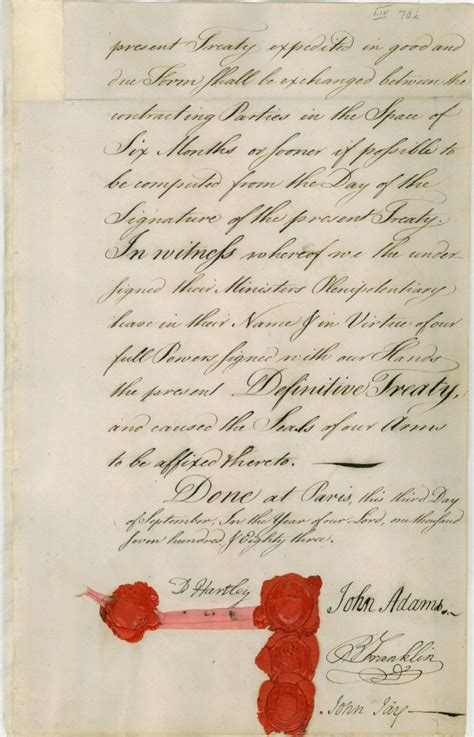 LIV 702
present Treaty expedited in good and
due Form shall be exchanged between the
contracting Parties in the Space of
Six Months or sooner if possible to
be computed from the Day of the
Signature of the present Treaty.
In witness whereof we the under
signed their Ministers Plenipotentiary
have in their Name & in Virtue of our
full Powers signed with our Hands
the present Definitive Treaty,
and caused the Seals of our Arms
to be affixed thereto.
Done at Paris, this third Day
of September, In the Year of our Lord, one thousand
seven hundred & Eighty three.
D Hartley
John Adams
B Franklin
John Jay